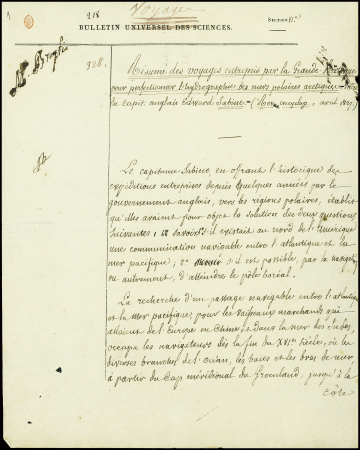 1
218
Voyages
BULLETIN UNIVERSEL DES SCIENCES.
Section
328.
Résumé des voyages entrepris par la Grande-Bretagne
pour perfectionner l'hydrographie des mers polaires arctiques
du capit. anglais Edward Sabine. (Rev. encyclop., avril 1827)
Le capitaine Sabine, en offrant l'historique des
expéditions entreprises depuis quelques années par le
gouvernement anglais, vers les régions polaires, établit
qu'elles avaient pour objet la solution des deux questions
suivantes, 1° savoir s'il existait au nord de l'Amérique
une communication navigable entre l'atlantique et la
mer pacifique; 2° s'il est possible, par la navigation
ou autrement, d'atteindre le pôle boréal.
La recherche d'un passage navigable entre l'atlantique
et la mer pacifique, pour les vaisseaux marchands qui
allaient de l'Europe en Chine et dans la mer des Indes,
occupa les navigateurs dès la fin du XVIe siècle, où les
diverses branches de l'océan, les baies et les bras de mer
à partir du Cap méridional du Groenland, jusqu'à la
côte